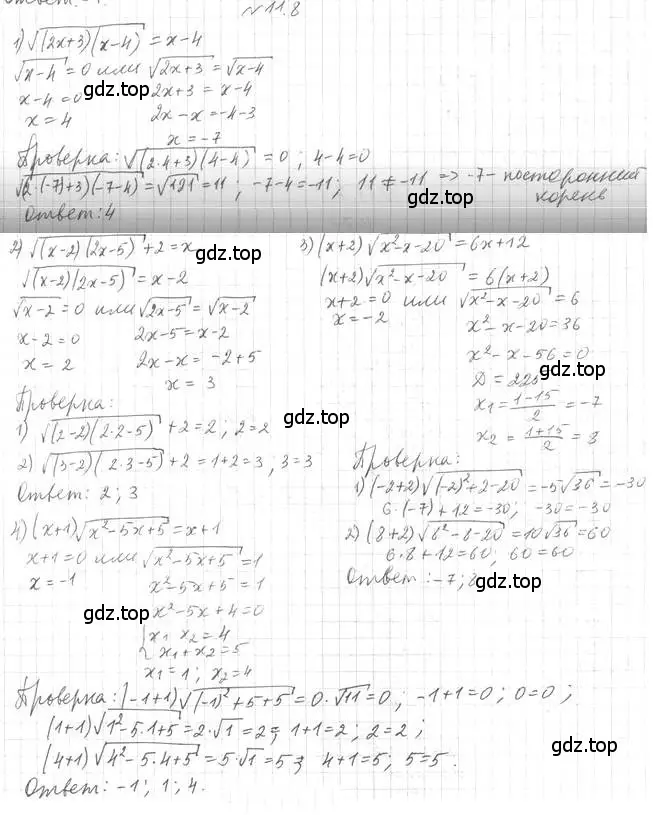 №11.8
1) √(2x+3)(x-4) = x-4
√x-4 = 0 или √2x+3 = √x-4
x-4=0 2x+3 = x-4
x = 4 2x-x=-4-3
x = -7
Проверка: √(2·4+3)(4-4) = 0; 4-4=0
√(2·(-7)+3)(-7-4) = √121 = 11; -7-4=-11; 11≠-11 => -7- посторонний
корень
Ответ: 4
2) √(x-2)(2x-5) + 2 = x
√(x-2)(2x-5) = x-2
√x-2 = 0 или √2x-5 = √x-2
x-2=0 2x-5=x-2
x = 2 2x-x = -2+5
x = 3
Проверка:
1) √(2-2)(2·2-5) + 2 = 2; 2=2
2) √(3-2)(2·3-5) + 2 = 1+2=3; 3=3
Ответ: 2; 3
3) (x+2)√x²-x-20 = 6x+12
(x+2)√x²-x-20 = 6(x+2)
x+2=0 или √x²-x-20 = 6
x=-2 x²-x-20=36
x²-x-56=0
D = 225
x₁ = 1-15/2 = -7
x₂ = 1+15/2 = 8
Проверка:
1) (-7+2)√(-7)²+7-20 = -5√36 = -30
6·(-7)+12=-30; -30=-30
2) (8+2)√8²-8-20 = 10√36 = 60
6·8+12=60; 60=60
Ответ: -7; 8
4) (x+1)√x²-5x+5 = x+1
x+1=0 или √x²-5x+5 = 1
x=-1 x²-5x+5=1
x²-5x+4=0
{x₁ x₂ = 4
x₁+x₂=5
x₁=1; x₂=4
Проверка: (-1+1)√(-1)²+5+5 = 0·√11 = 0; -1+1=0; 0=0;
(1+1)√1²-5·1+5 = 2·√1 = 2; 1+1=2; 2=2;
(4+1)√4²-5·4+5 = 5·√1 = 5; 4+1=5; 5=5.
Ответ: -1; 1; 4.
gdz.top
gdz.top
gdz.top
gdz.top
gdz.top
gdz.top
gdz.top
gdz.top
gdz.top